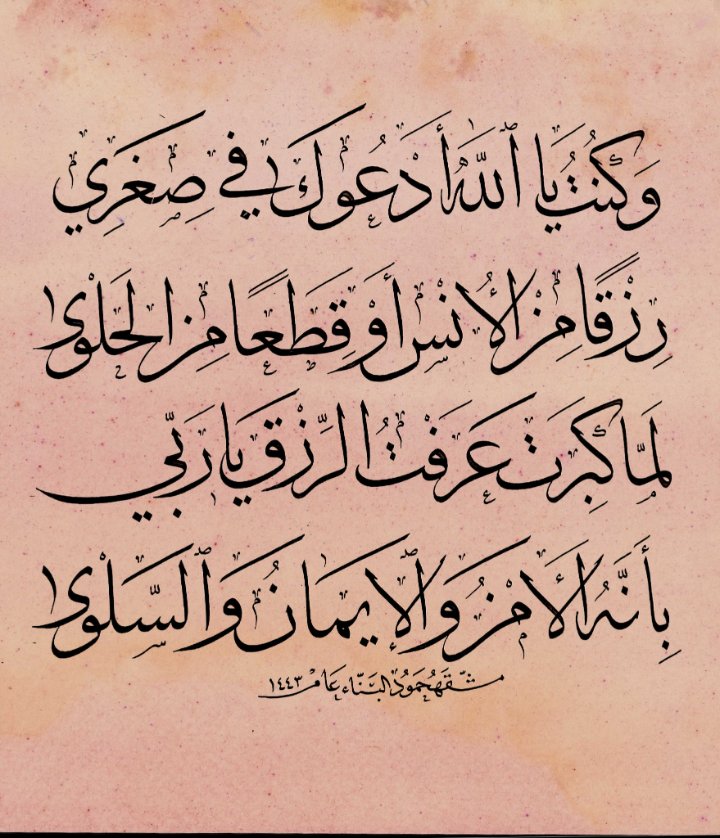 وَكُنْتُ يَا اللَّهُ أَدْعُوكَ فِي صِغَرِي
رِزْقًا مِنْ الأُنْسِ أَوْ قِطَعًا مِنَ الحَلْوى
لَمَّا كَبِرْتُ عَرَفْتُ الرِّزْقَ يَا رَبِّي
بِأَنَّهُ الأَمْنُ وَالإِيمَانُ وَالسَّلْوى
مشقه حمود البناء عام ١٤٤٣